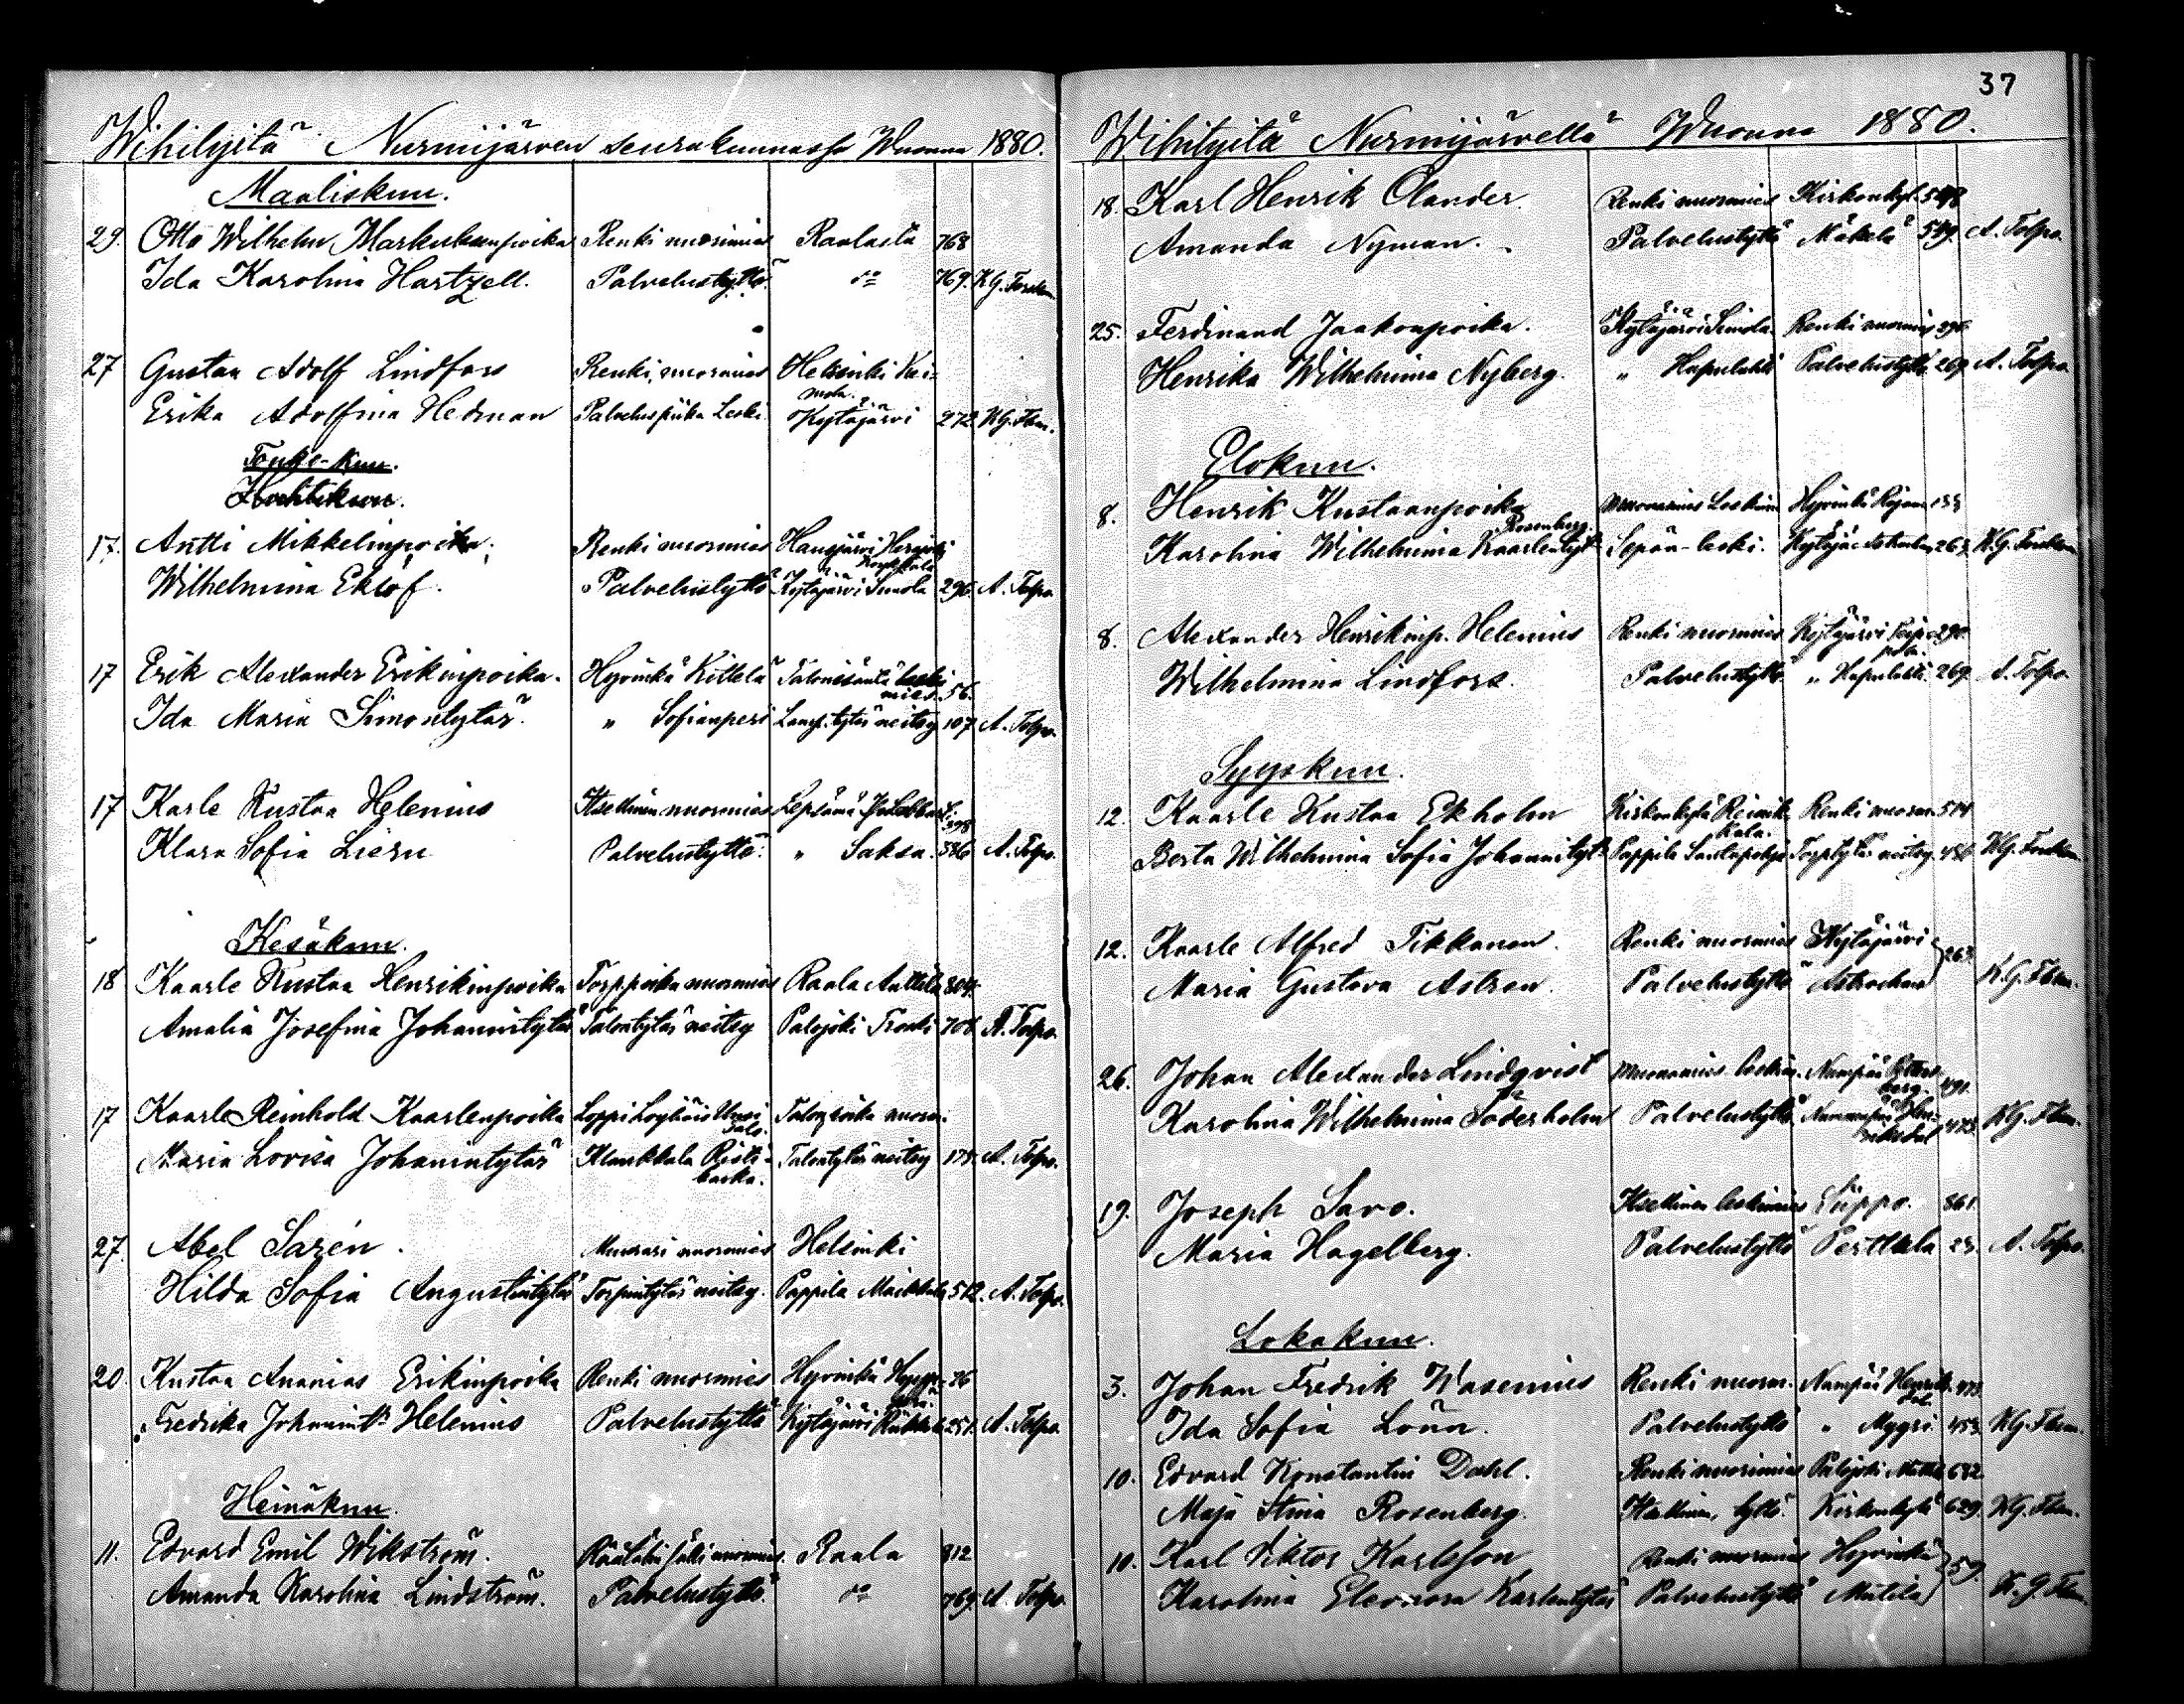 Wihityitä Nurmijärven seurakunnassa Wuonna 1880.
Maaliskuu.
29. Otto Wilhelm Markuksenpoika Renki nuorimies Raalasta 768
Ida Karolina Hartzell. Palvelustyttö do 769. KG. Forsbom
27 Gustaa Adolf Lindfors Renki, nuorimies Helsinki
Erika Adolfina Hedman Palveluspiika Leski Kytäjärvi 272 KG. Fbm.
Touko-kuu.
Huhtikuu.
17. Antti Mikkelinpoika. Renki nuorimies Hausjärvi
Wilhelmina Eklöf. Palvelustyttö Kytäjärvi Simola 296. A. Tolpo
17 Erik Alexander Erikinpoika. Hyvinkä Kittelä Talonisäntä leski
mies. 56.
Ida Maria Simontytär. " Sofianperi Lamp. tytär neitsy 107 A. Tolpo.
17 Karle Kustaa Helenius Itsellinen nuorimies Lepsämä
Klara Sofia Liern Palvelustyttö. " Saksa. 386 A. Tolpo.
Kesäkuu.
18 Kaarle Kustaa Henrikinpoika Torppoika nuorimies Raala Anttila 804.
Amalia Josefina Johanintytär Talontytär neitsy Palojoki Tronki 706 A. Tolpo.
17 Kaarle Reinhold Kaarlenpoika Loppi Loytöis Uusi
Talo. Talonpoika nuorm.
Maria Lovisa Johanintytär Klaukkala Risti-
backa. Talontytär neitsy 175. A. Tolpo.
27. Abel Sarén. Muurari nuorimies Helsinki
Hilda Sofia Augustintytär Torpintytär neitsy. Pappila 512. A. Tolpo.
20. Kustaa Ananias Erikinpoika Renki nuorimies Hyvinkä 36
Fredrika Johanint. Helenius Palvelustyttö Kytäjärvi 251. A. Tolpo.
Heinäkuu.
11. Edvard Emil Wikström. Räätälin nuorimies. Raala 812
Amanda Karolina Lindström. Palvelustyttö. do 769. A. Tolpo
37
Wihityitä Nurmijärvellä Wuonna 1880.
18. Karl Henrik Olander. Renki nuorimies Kirkonkyl. 548
Amanda Nyman. Palvelustyttö Mäkelä 549. A. Tolpo.
25. Ferdinand Jaakonpoika. Kytäjärvi Simola. Renki nuorimies 296.
Henrika Wilhelmina Nyberg. " Hapulahti Palvelustyttö 269. A. Tolpo
Elokuu.
8. Henrik Kustaanpoika Leskim. Hyvinkä
Rosenberg.
Karolina Wilhelmina Kaarlentyt. Sepän-leski. 263. K.G. Forsbom
8. Alexander Henrikinp. Helenius Renki nuorimies Kytäjärvi 290.
Wilhelmina Lindfors. Palvelustyttö " Hapulahti. 269. A. Tolpo.
Syyskuu.
12. Kaarle Kustaa Ekholm Kirkonkylä Renki nuorim. 514
Berta Wilhelmina Sofia Johanintyt. Pappila Santapohja Torptytär neitsy. 456 KG. Forsbom
12. Kaarle Alfred Tikkanen. Renki nuorimies Kytäjärvi
263.
Maria Gustava Astren. Palvelustyttö Astrachan K.G. Fbm.
26. Johan Alexander Lindqvist leskim. Numpää 491.
Karolina Wilhelmina Söderholm Palvelustyttö Nummenpää 473. KG. Fbm.
19. Joseph Savo. Itsellinen leskimies Siippo. 861.
Maria Hagelberg. Palvelustyttö Perttula 23. A. Tolpo.
Lokakuu.
3. Johan Fredrik Wasenius Renki nuorm. Numpää 473.
Ida Sofia Lönn. Palvelustyttö " Myyri. 453. KG. Fbm.
10. Edvard Konstantin Dahl. Renki nuorimies Palojoki 682.
Maja Stina Rosenberg. Itsellinen, tyttö. Kirkonkylä 629. KG. Fbm.
10. Karl Viktor Karlsson Renki nuorimies Hyvinkä
59.
Karolina Eleonora Karlentytär Palvelustyttö Mutila K.G. Fbm.